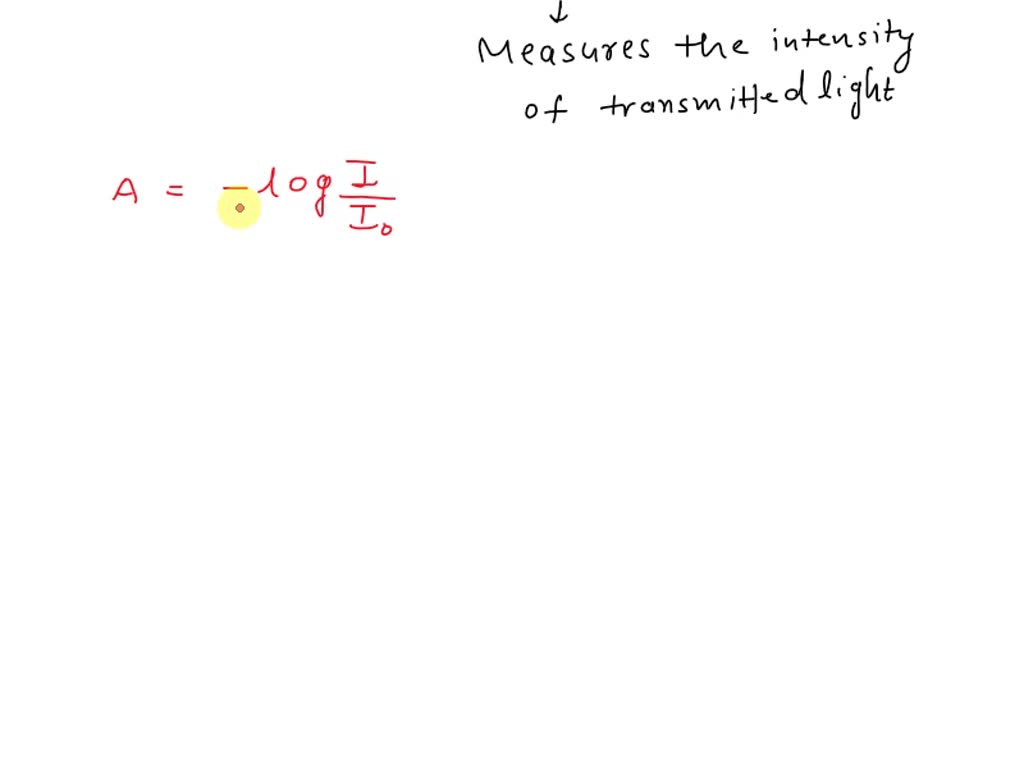 ↓
Measures the intensity
of transmitted light
A = -log I/I₀